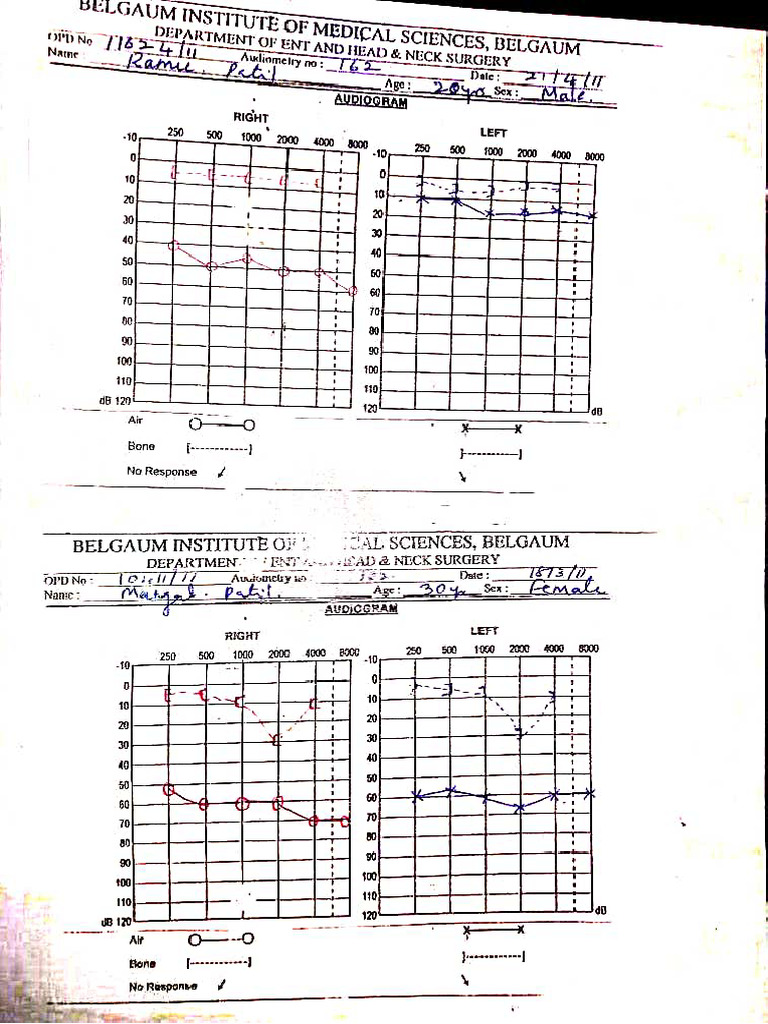 BELGAUM INSTITUTE OF MEDICAL SCIENCES, BELGAUM
DEPARTMENT OF ENT AND HEAD & NECK SURGERY
OPD No 11624/11 Audiometry no : 162 Date : 21/4/11
Name : Ramu Patil Age : 20yrs Sex : Male
AUDIOGRAM
RIGHT LEFT
250 500 1000 2000 4000 8000 250 500 1000 2000 4000 8000
-10 -10
0 0
10 10
20 20
30 30
40 40
50 50
60 60
70 70
80 80
90 90
100 100
110 110
dB 120 120 dB
Air
Bone
No Response
BELGAUM INSTITUTE OF SCIENCES, BELGAUM
ENT HEAD & NECK SURGERY
OPD No : Audiometry no Date : 18/3/11
Name : Mangal Patil. Age : 30yr Sex : Female
AUDIOGRAM
RIGHT LEFT
250 500 1000 2000 4000 8000 250 500 1000 2000 4000 8000
-10 -10
0 0
10 10
20 20
30 30
40 40
50 50
60 60
70 70
80 80
90 90
100 100
110 110
dB 120 120 dB
Air
Bone
No Response